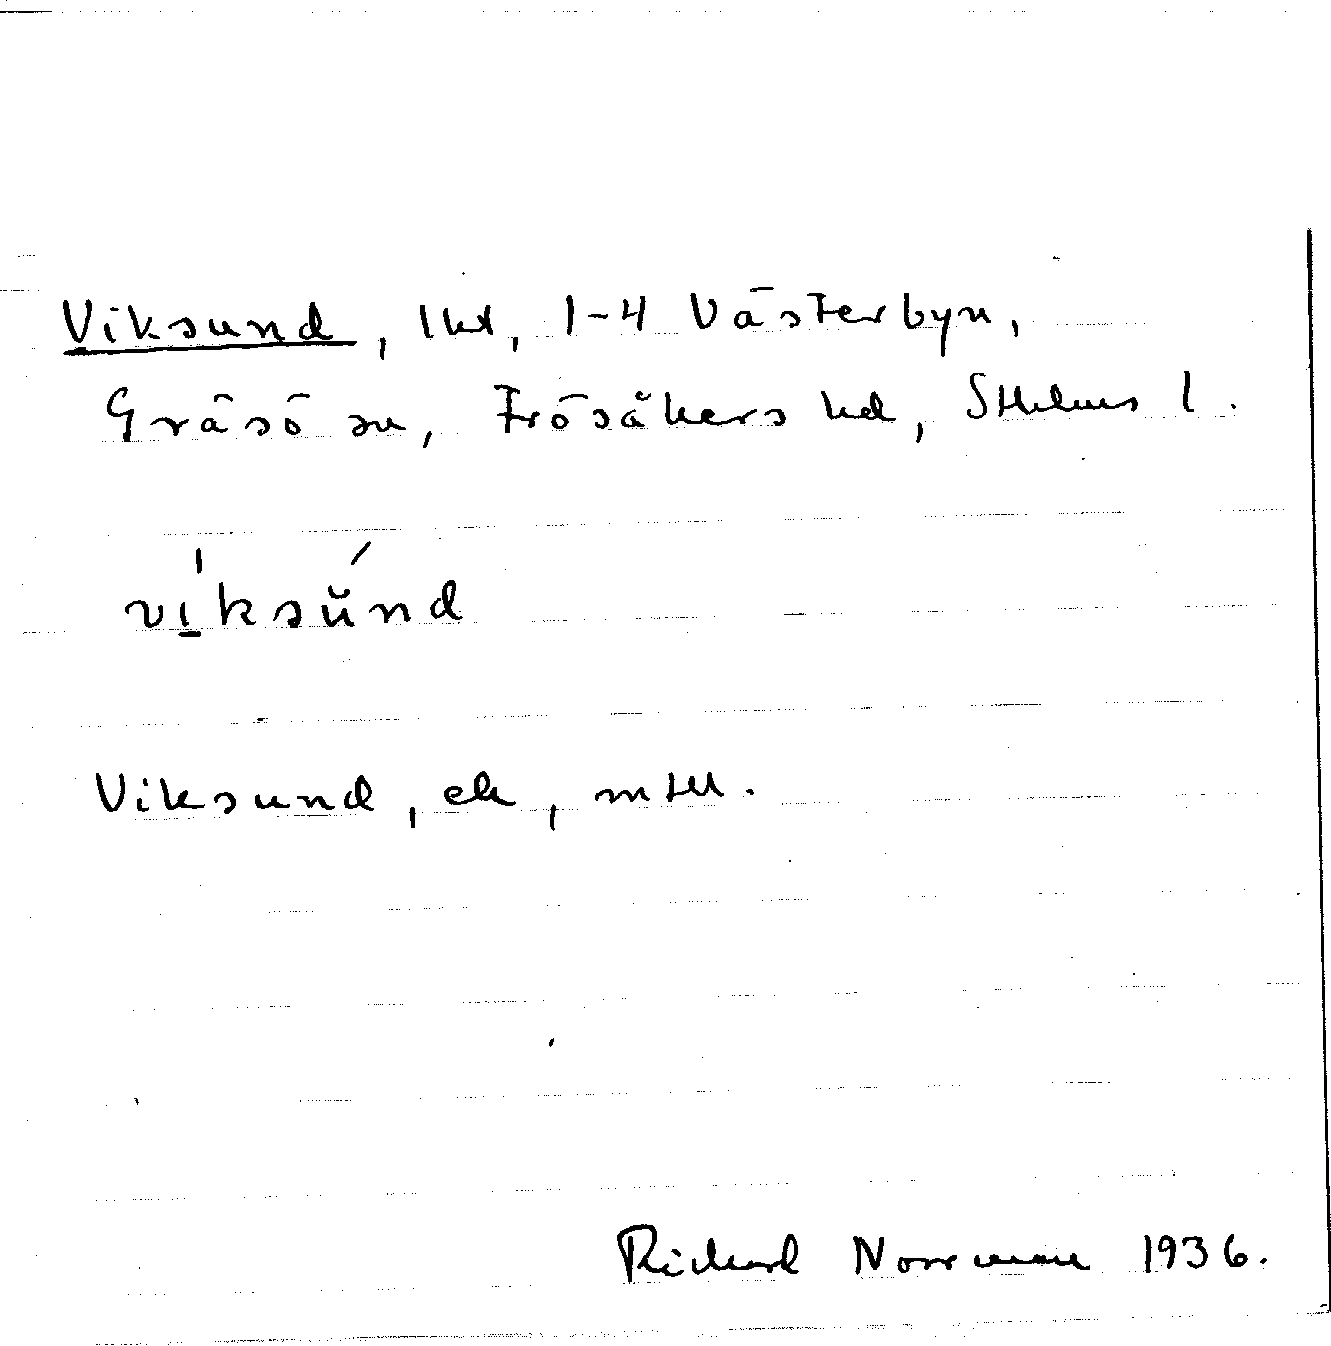 Viksund, lht, 1-4 Västerbyn,
Gräsö sn, Frösåkers hd, Sthlms l.
vi̱ksŭnd
Viksund, ek, mtll.
Richard Norrman 1936.